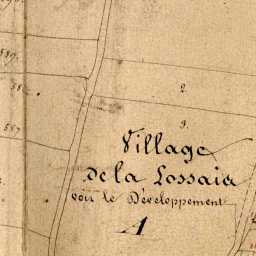 589.
58
2
3.
587
Village
de la Lossais
voir le Développement
A